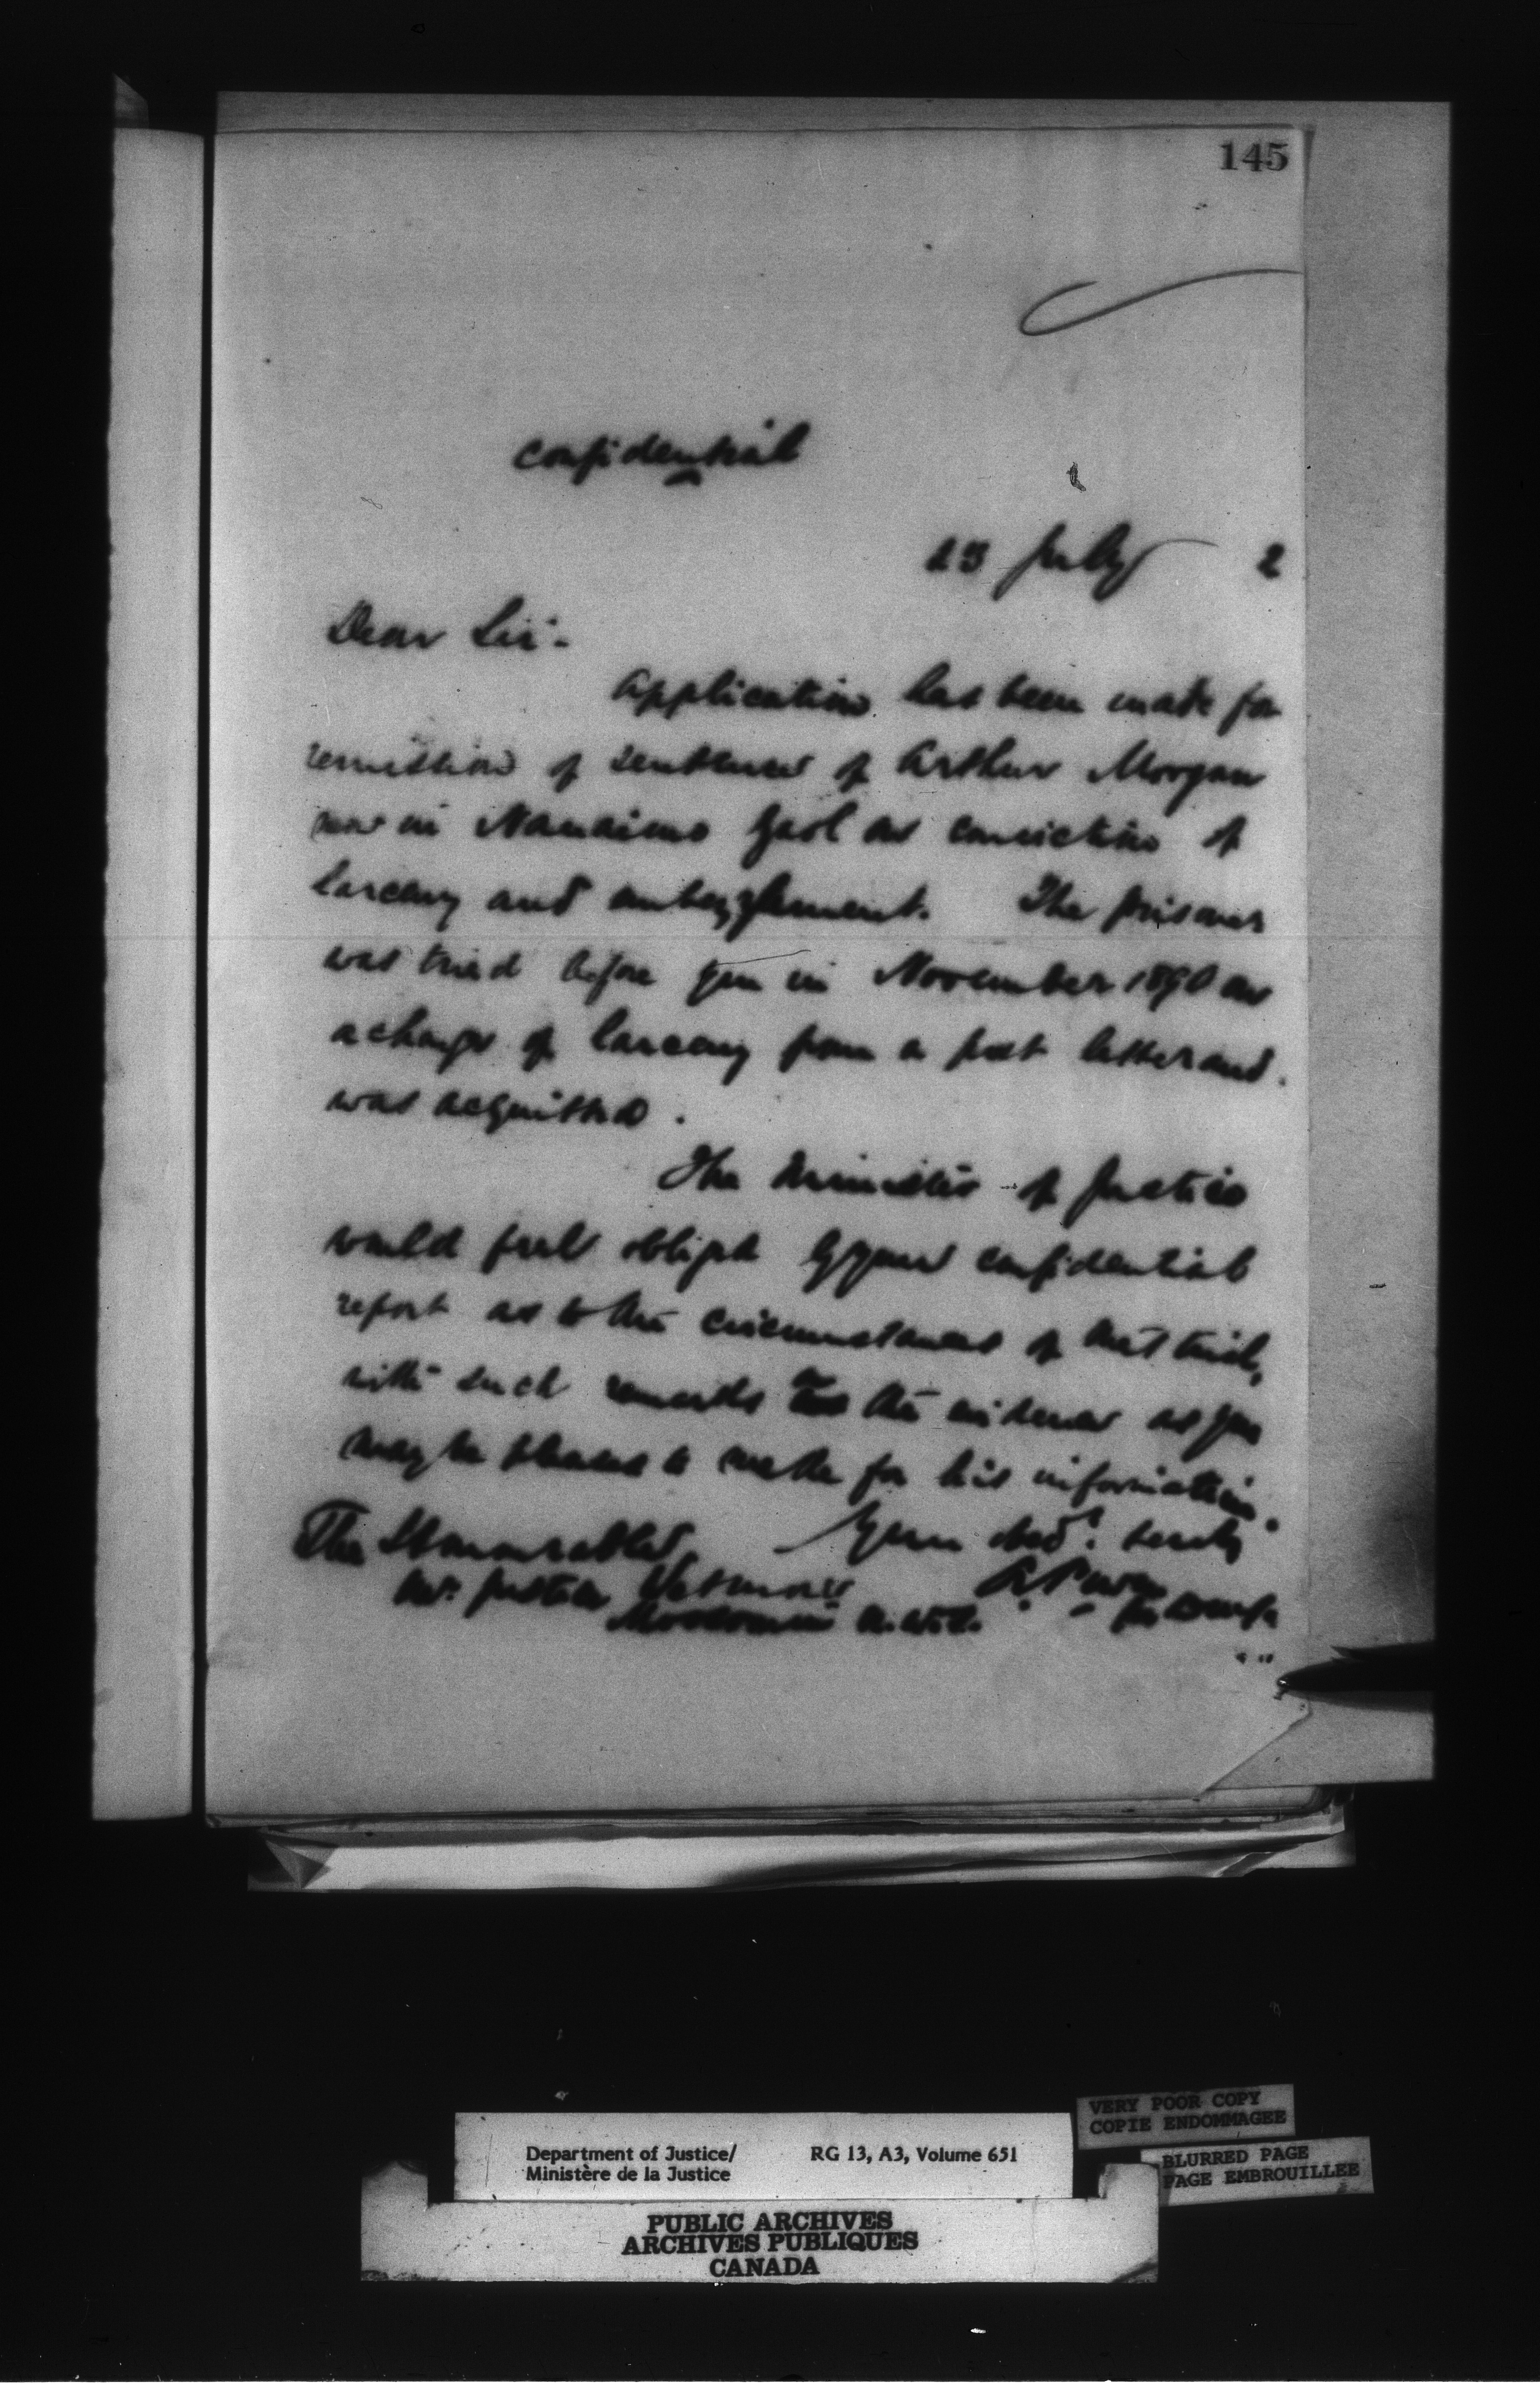 145
Confidential
13 July 2
Dear Sir:-
Application has been made for
remission of sentence of Arthur Morgan
now in Nanaimo Gaol on conviction of
larceny and embezzlement. The prisoner
was tried before you in November 1890 on
a charge of larceny from a post letter and
was acquitted.
The Minister of Justice
would feel obliged by your confidential
report as to the circumstances of that trial,
with such remarks on the evidence as you
may be pleased to make for his information.
Your obdt. servt.
The Honourable
Mr. Justice Wetmore
Moosomin N.W.T.
A. Power
for
Department of Justice/ RG 13, A3, Volume 651
Ministère de la Justice
VERY POOR COPY
COPIE ENDOMMAGEE
BLURRED PAGE
PAGE EMBROUILLEE
PUBLIC ARCHIVES
ARCHIVES PUBLIQUES
CANADA